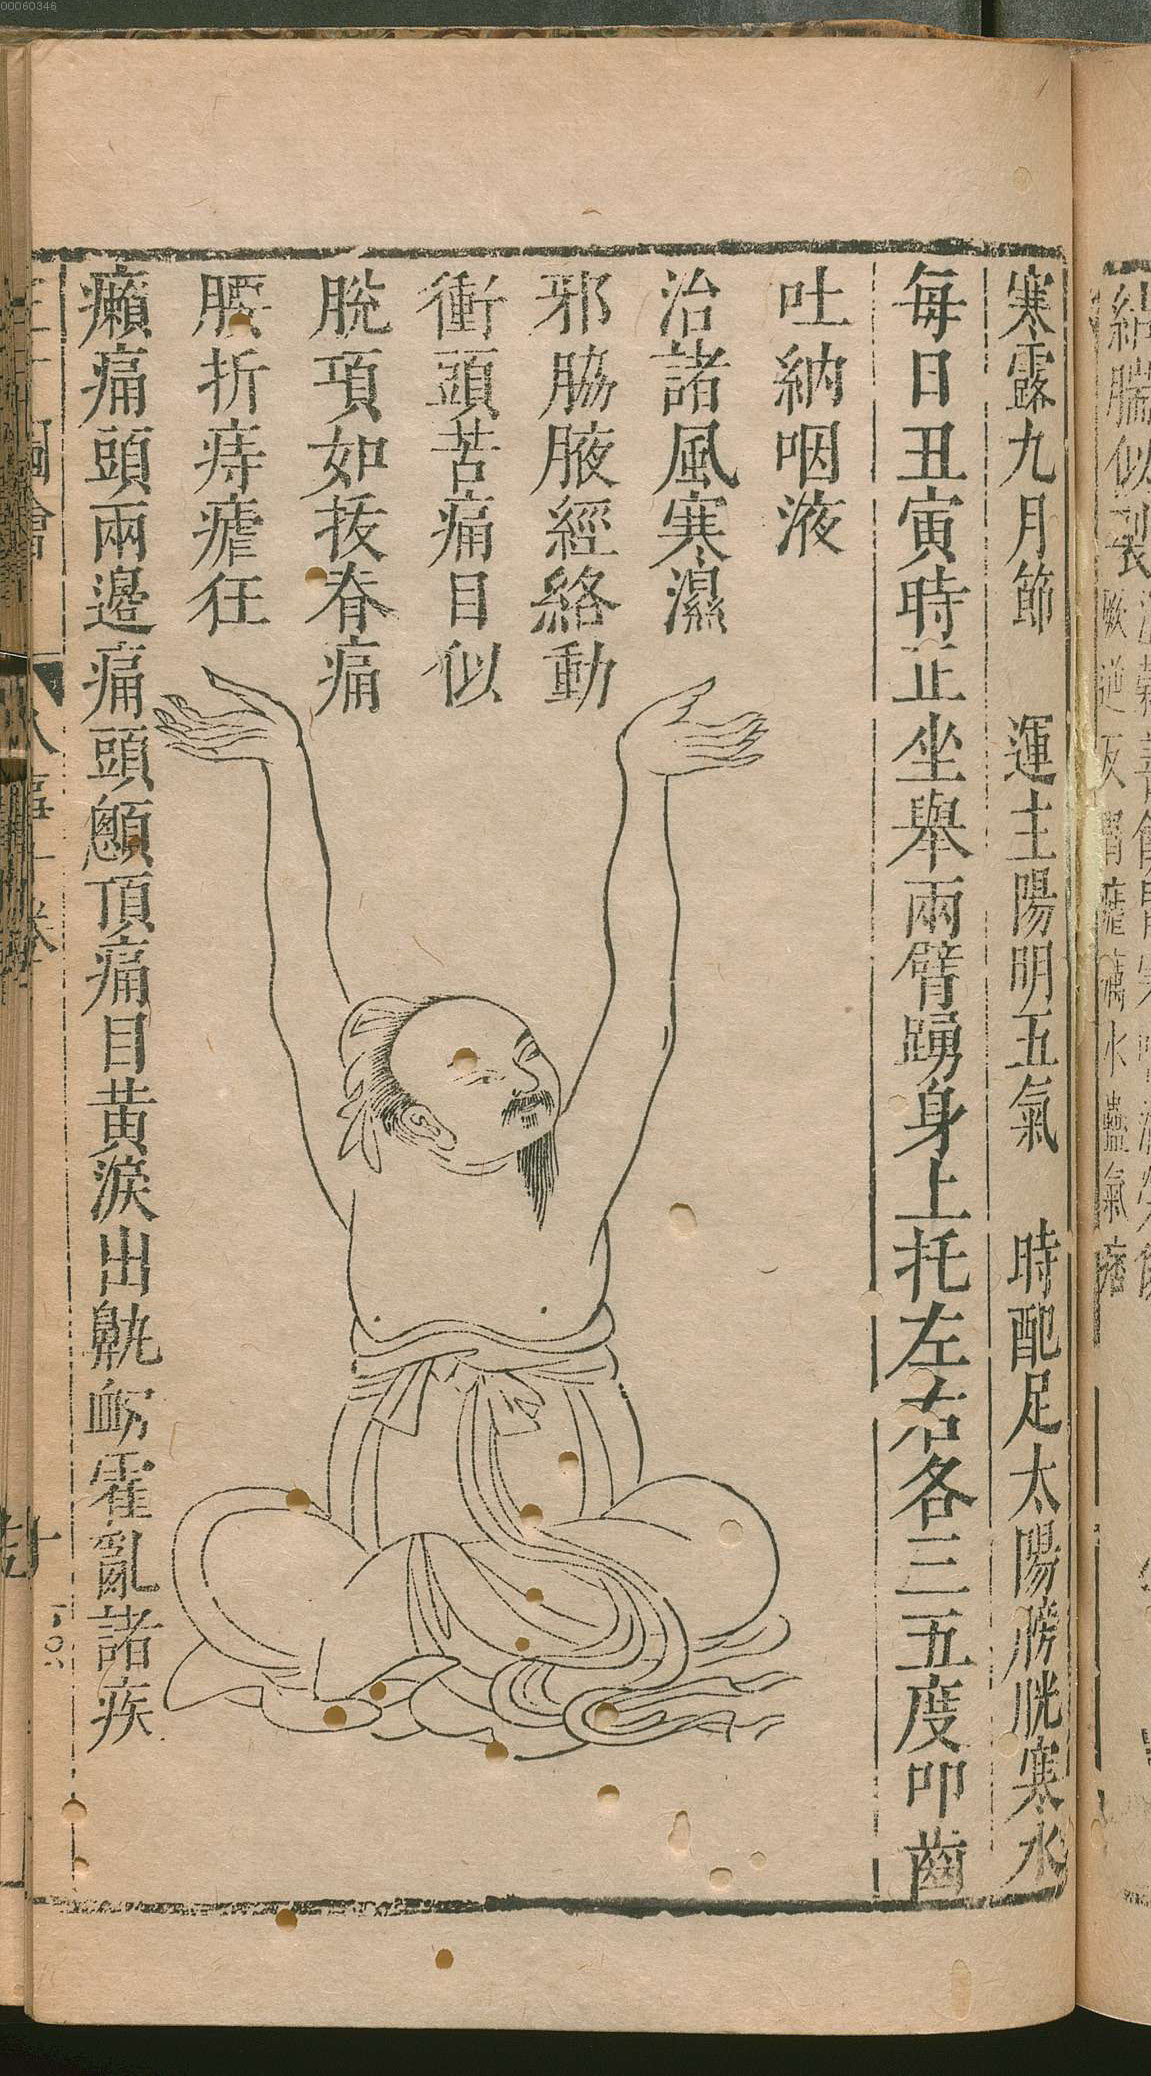 寒露九月節　運主陽明五氣　時配足太陽膀胱寒水
每日丑寅時正坐舉兩臂踴身上托左右各三五度叩齒
吐納咽液
治諸風寒濕
邪脇腋經絡動
衝頭苦痛目似
脫項如拔脊痛
腰折痔瘧狂
癲痛頭兩邊痛頭顖頂痛目黃淚出鼽衂霍亂諸疾
00060346